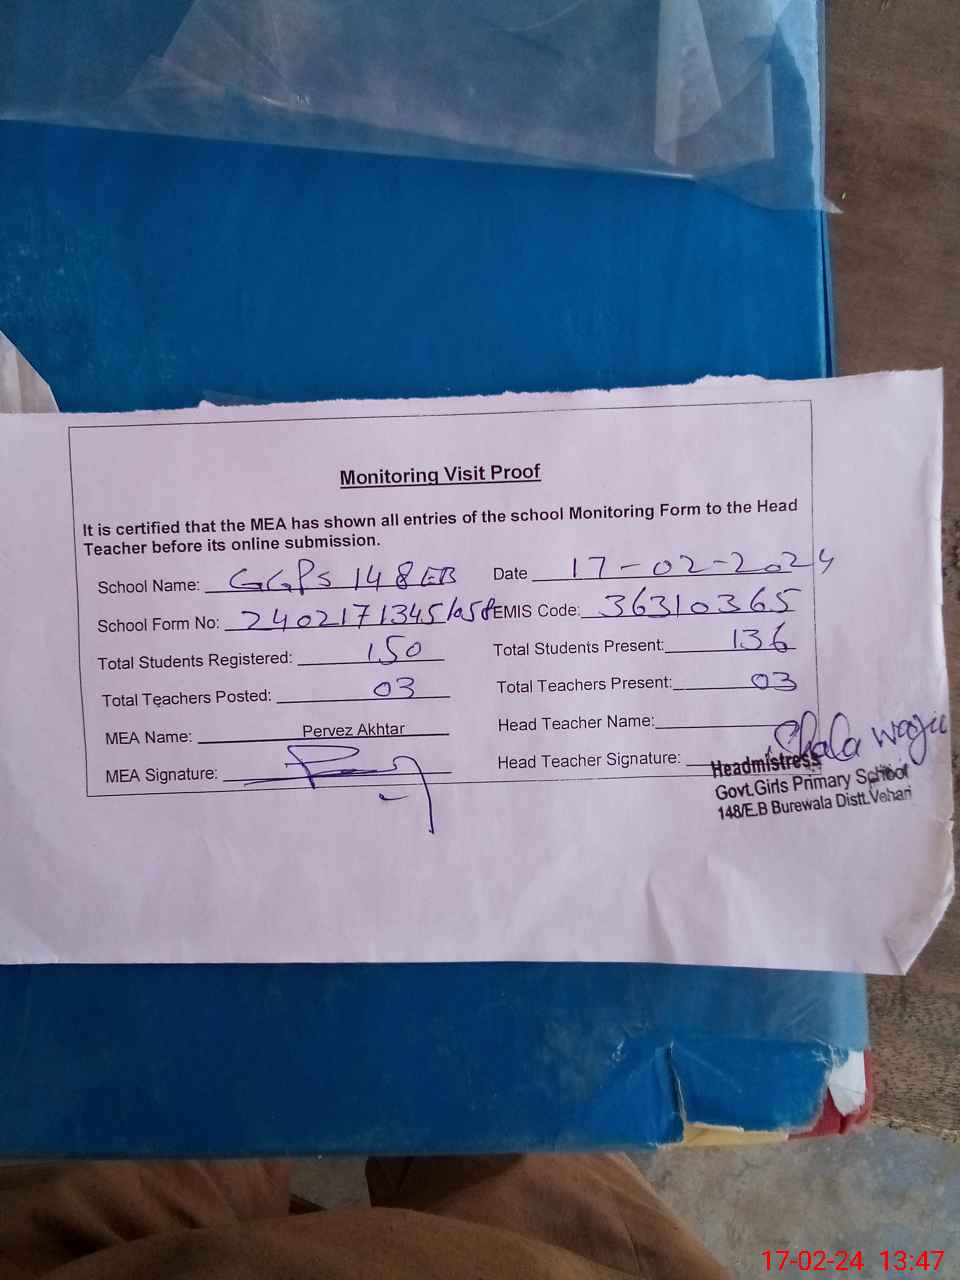 Monitoring Visit Proof
It is certified that the MEA has shown all entries of the school Monitoring Form to the Head
Teacher before its online submission.
School Name: GGPS 148 EB Date 17-02-2024
School Form No: 2402171345 EMIS Code: 36310365
Total Students Registered: 150 Total Students Present: 136
Total Teachers Posted: 03 Total Teachers Present: 03
MEA Name: Pervez Akhtar Head Teacher Name:
MEA Signature: Head Teacher Signature:
Headmistress
Govt.Girls Primary School
148/E.B Burewala Distt.Vehari
17-02-24 13:47